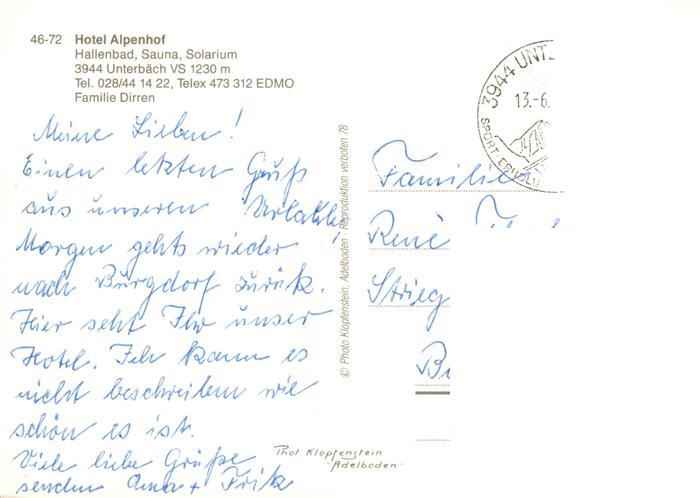 46-72 Hotel Alpenhof
Hallenbad, Sauna, Solarium
3944 Unterbäch VS 1230 m
Tel. 028/44 14 22, Telex 473 312 EDMO
Familie Dirren
Meine Lieben!
Einen letzten Gruß
aus unseren
Morgen gehts wieder
nach Burgdorf zurük.
Hier seht Ihr unser
Hotel. Ich kann es
nicht beschreiben wie
schön es ist.
Viele liebe Grüße
senden + Fritz
© Photo Klopfenstein, Adelboden · Reproduktion verboten 78
Phot Klopfenstein
·Adelboden·
3944 UNT
13.-6.
SPORT ERHOLU
Familie
René
Strieg
Bu